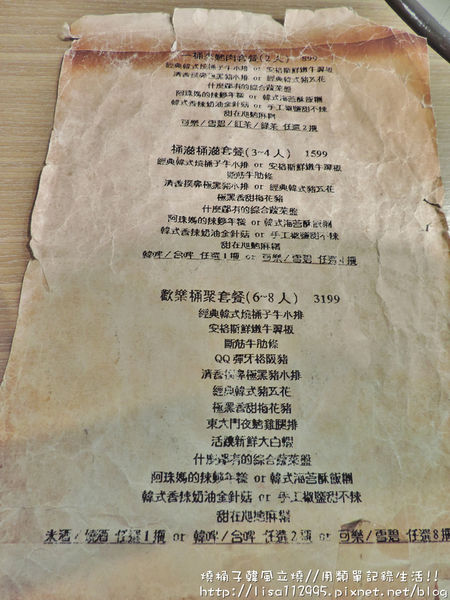 一桶烤魷肉套餐(2人) 899
經典韓式燒桶子牛小排 or 安格斯鮮嫩牛翼板
清香撲鼻極黑豬小排 or 經典韓式豬五花
什麼都有的綜合蔬菜盤
阿珠媽的辣炒年糕 or 韓式海苔酥飯糰
韓式香辣奶油金針菇 or 手工椒鹽甜不辣
甜在尬麻糬
可樂/雪碧/紅茶/綠茶 任選2擺
桶滋桶滋套餐(3~4人) 1599
經典韓式燒桶子牛小排 or 安格斯鮮嫩牛翼板
斷筋牛肋條
清香撲鼻極黑豬小排 or 經典韓式豬五花
極黑香甜梅花豬
什麼都有的綜合蔬菜盤
阿珠媽的辣炒年糕 or 韓式海苔酥飯糰
韓式香辣奶油金針菇 or 手工椒鹽甜不辣
甜在尬麻糬
韓啤/台啤 任選1擺 or 可樂/雪碧 任選4擺
歡樂桶聚套餐(6~8人) 3199
經典韓式燒桶子牛小排
安格斯鮮嫩牛翼板
斷筋牛肋條
QQ彈牙松阪豬
清香撲鼻極黑豬小排
經典韓式豬五花
極黑香甜梅花豬
東大門夜魷雞腿排
活跳新鮮大白蝦
什麼都有的綜合蔬菜盤
阿珠媽的辣炒年糕 or 韓式海苔酥飯糰
韓式香辣奶油金針菇 or 手工椒鹽甜不辣
甜在尬麻糬
米酒/燒酒 任選1擺 or 韓啤/台啤 任選2擺 or 可樂/雪碧 任選8擺
燒桶子韓風立燒//用類單記錄生活!!
http://lisa112995.pixnet.net/blog